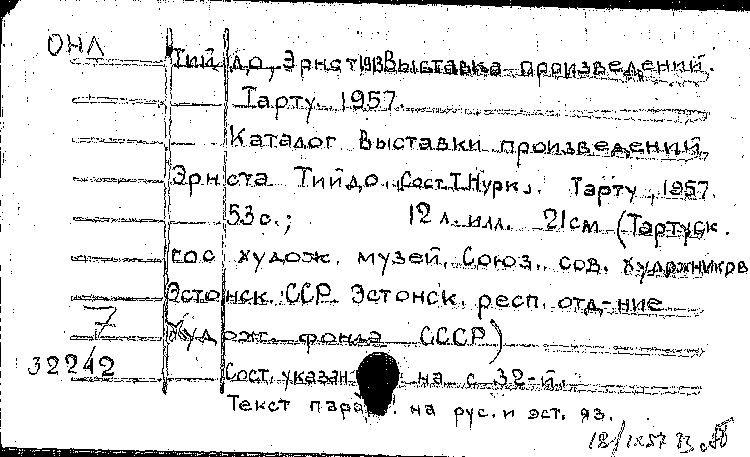 ОНЛ
Тийдо, Эрнст 1913 Выставка произведений.
Тарту. 1957.
Каталог выставки произведений
Эрнста Тийдо. Сост. Т. Нурк. Тарту, 1957.
53 с.; 12 л. илл. 21 см (Тартуск.
гос худож. музей. Союз. сов. художников
Эстонск. ССР. Эстонск. респ. отд-ние
7 Худож. фонда СССР)
32242
Сост. указан на с 32-й.
Текст парал. на рус. и эст. яз.